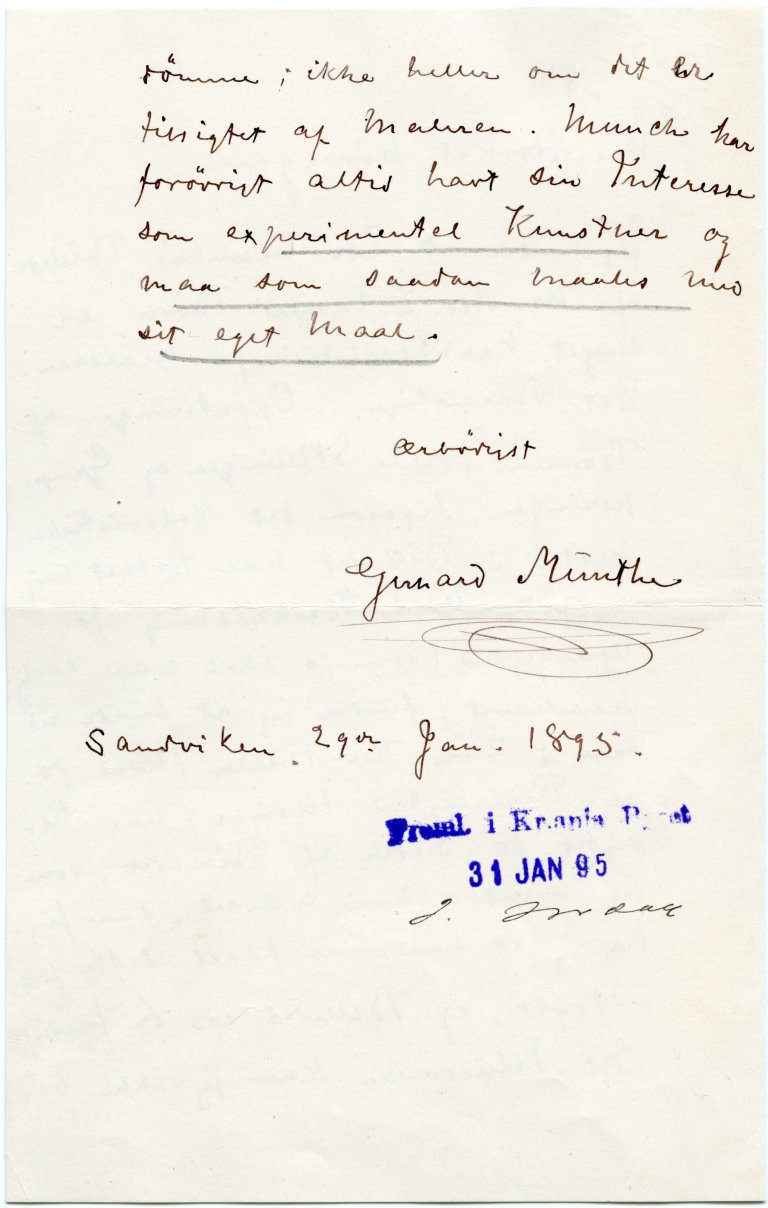 dömme; ikke heller om det er
tilsigtet af Maleren. Munch har
forövrigt altid havt sin Interesse
som experimentel Kunstner og
maa som saadan maales med
sit eget Maal.
ærbödigst
Gerhard Munthe
Sandviken. 29de Jan. 1895.
Freml. i Kr.ania Byret
31 JAN 95